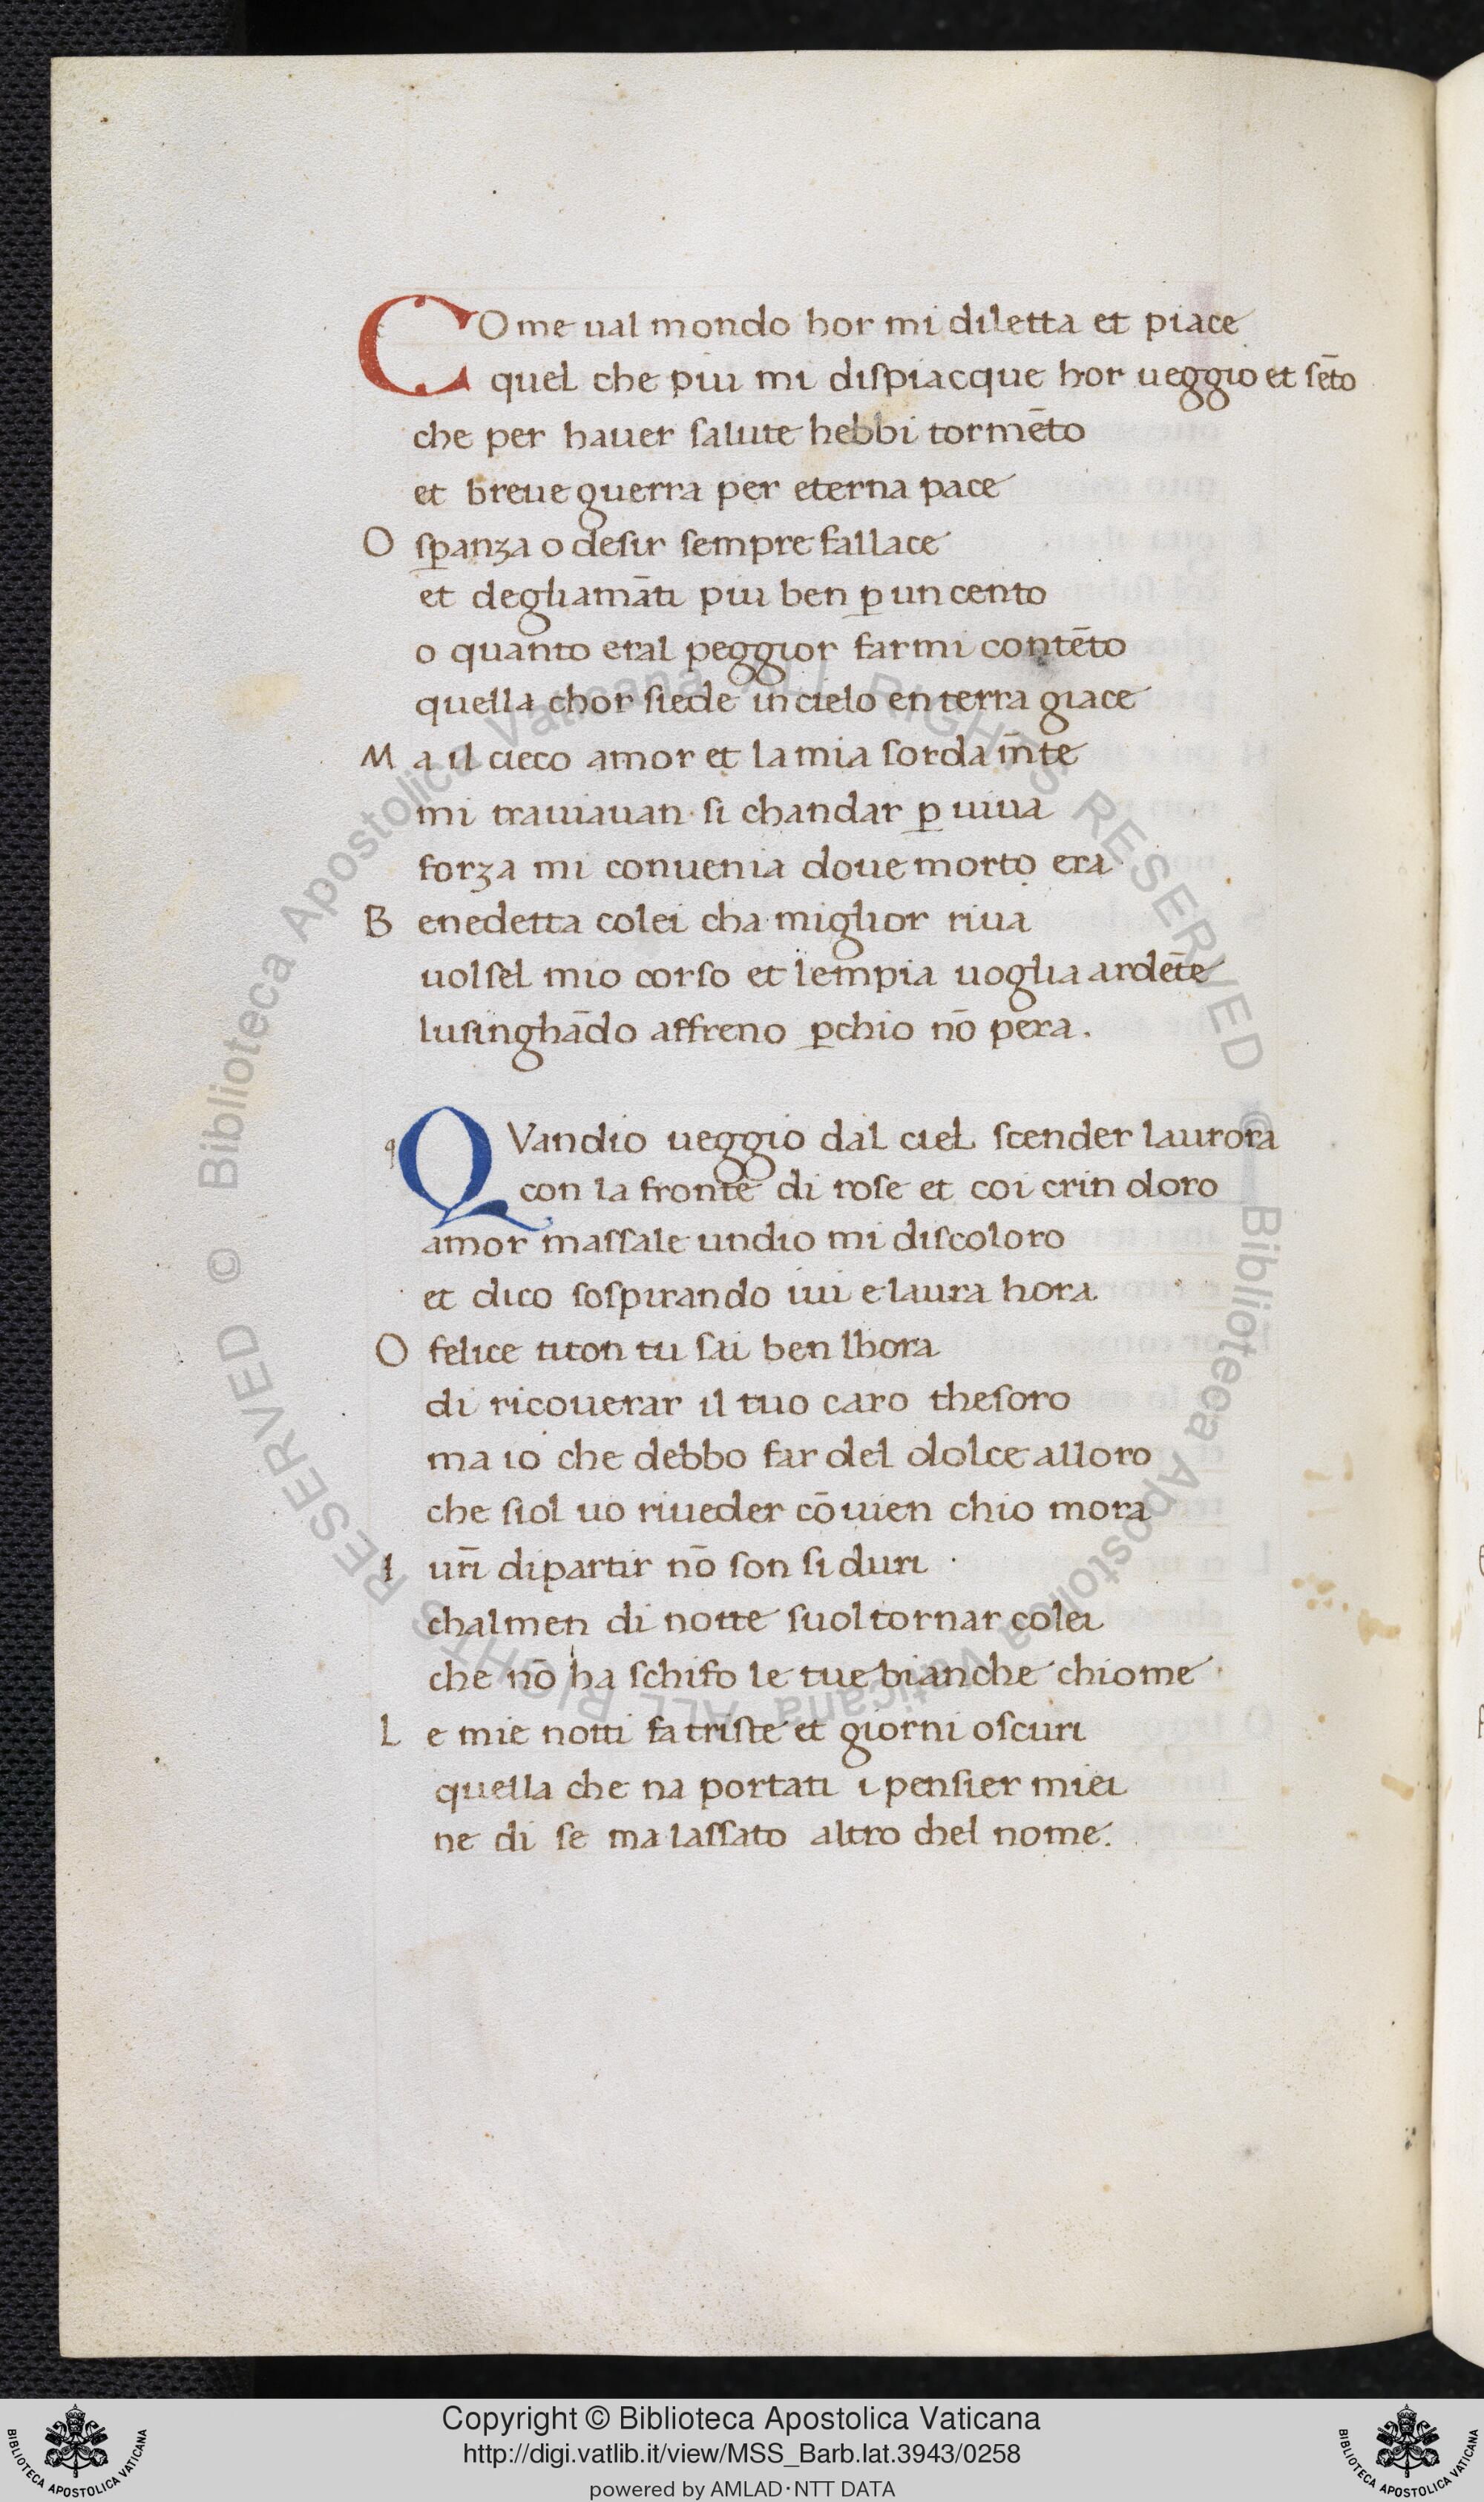 COme ual mondo hor mi diletta et piace
quel che piu mi diſpiacque hor ueggio et ſēto
che per hauer ſalute hebbi tormēto
et breue guerra per eterna pace
O ſꝑanza o deſir ſempre fallace
et degliamāti piu ben ꝑ un cento
o quanto eral peggior farmi contēto
quella chor ſiede in cielo en terra giace
Ma il cieco amor et la mia ſorda m̄te
mi trauiauan ſi chandar ꝑ uiua
forza mi conuenia doue morto era
Benedetta colei cha miglior riua
uolſel mio corſo et lempia uoglia ardēte
luſinghādo affreno ꝑchio nō pera.
q
QVandio ueggio dal ciel ſcender laurora
con la fronte di roſe et coi crin doro
amor maſſale undio mi diſcoloro
et dico ſoſpirando iui e laura hora
O felice titon tu ſai ben lhora
di ricouerar il tuo caro theſoro
ma io che debbo far del dolce alloro
che ſiol uo riueder cōuien chio mora
I ur̄i dipartir nō ſon ſi duri
chalmen di notte ſuol tornar colei
che nō ha ſchifo le tue bianche chiome
Le mie notti fa triſte et giorni oſcuri
quella che na portati i penſier miei
ne di ſe ma laſſato altro chel nome.
© Biblioteca Apostolica Vaticana ALL RIGHTS RESERVED
© Biblioteca Apostolica Vaticana ALL RIGHTS RESERVED
Copyright © Biblioteca Apostolica Vaticana
http://digi.vatlib.it/view/MSS_Barb.lat.3943/0258
powered by AMLAD·NTT DATA
BIBLIOTECA APOSTOLICA VATICANA
BIBLIOTECA APOSTOLICA VATICANA